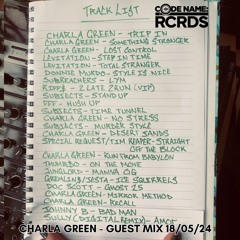 TRACK LIST
CODE NAME:
RCRDS
CHARLA GREEN - TRIP IN
CHARLA GREEN - SOMETHING STRONGER
CHARLA GREEN - LOST CONTROL
LEVITATION - STEP IN TIME
LEVITATION - TOTAL STRANGER
DONNIE MURDO - STYLE IS NICE
SUBREACHERS - LYM
RIPPS - 2 LATE 2 RUN (VIP)
SUBJECTS - STAND UP
FFF - HUSH UP
SUBJECTS - TIME TUNNEL
CHARLA GREEN - NO STRESS
SUBJECTS - MURDER STYLE
CHARLA GREEN - DESERT SANDS
SPECIAL REQUEST/TIM REAPER - STRAIGHT
OFF THE BLOCK
CHARLA GREEN - RUN FROM BABYLON
THUMBO - ON THE MOVE
JUNGLORD - MANNA OG
GREDALINE/JESTA - ICE SQUIRRELS
DOC SCOTT - GHOST 25
CHARLA GREEN - MIRROR METHOD
CHARLA GREEN - RECALL
JOHNNY B - BAD MAN
SULLY (DIGITAL REMIX) -
CHARLA GREEN - GUEST MIX 18/05/24